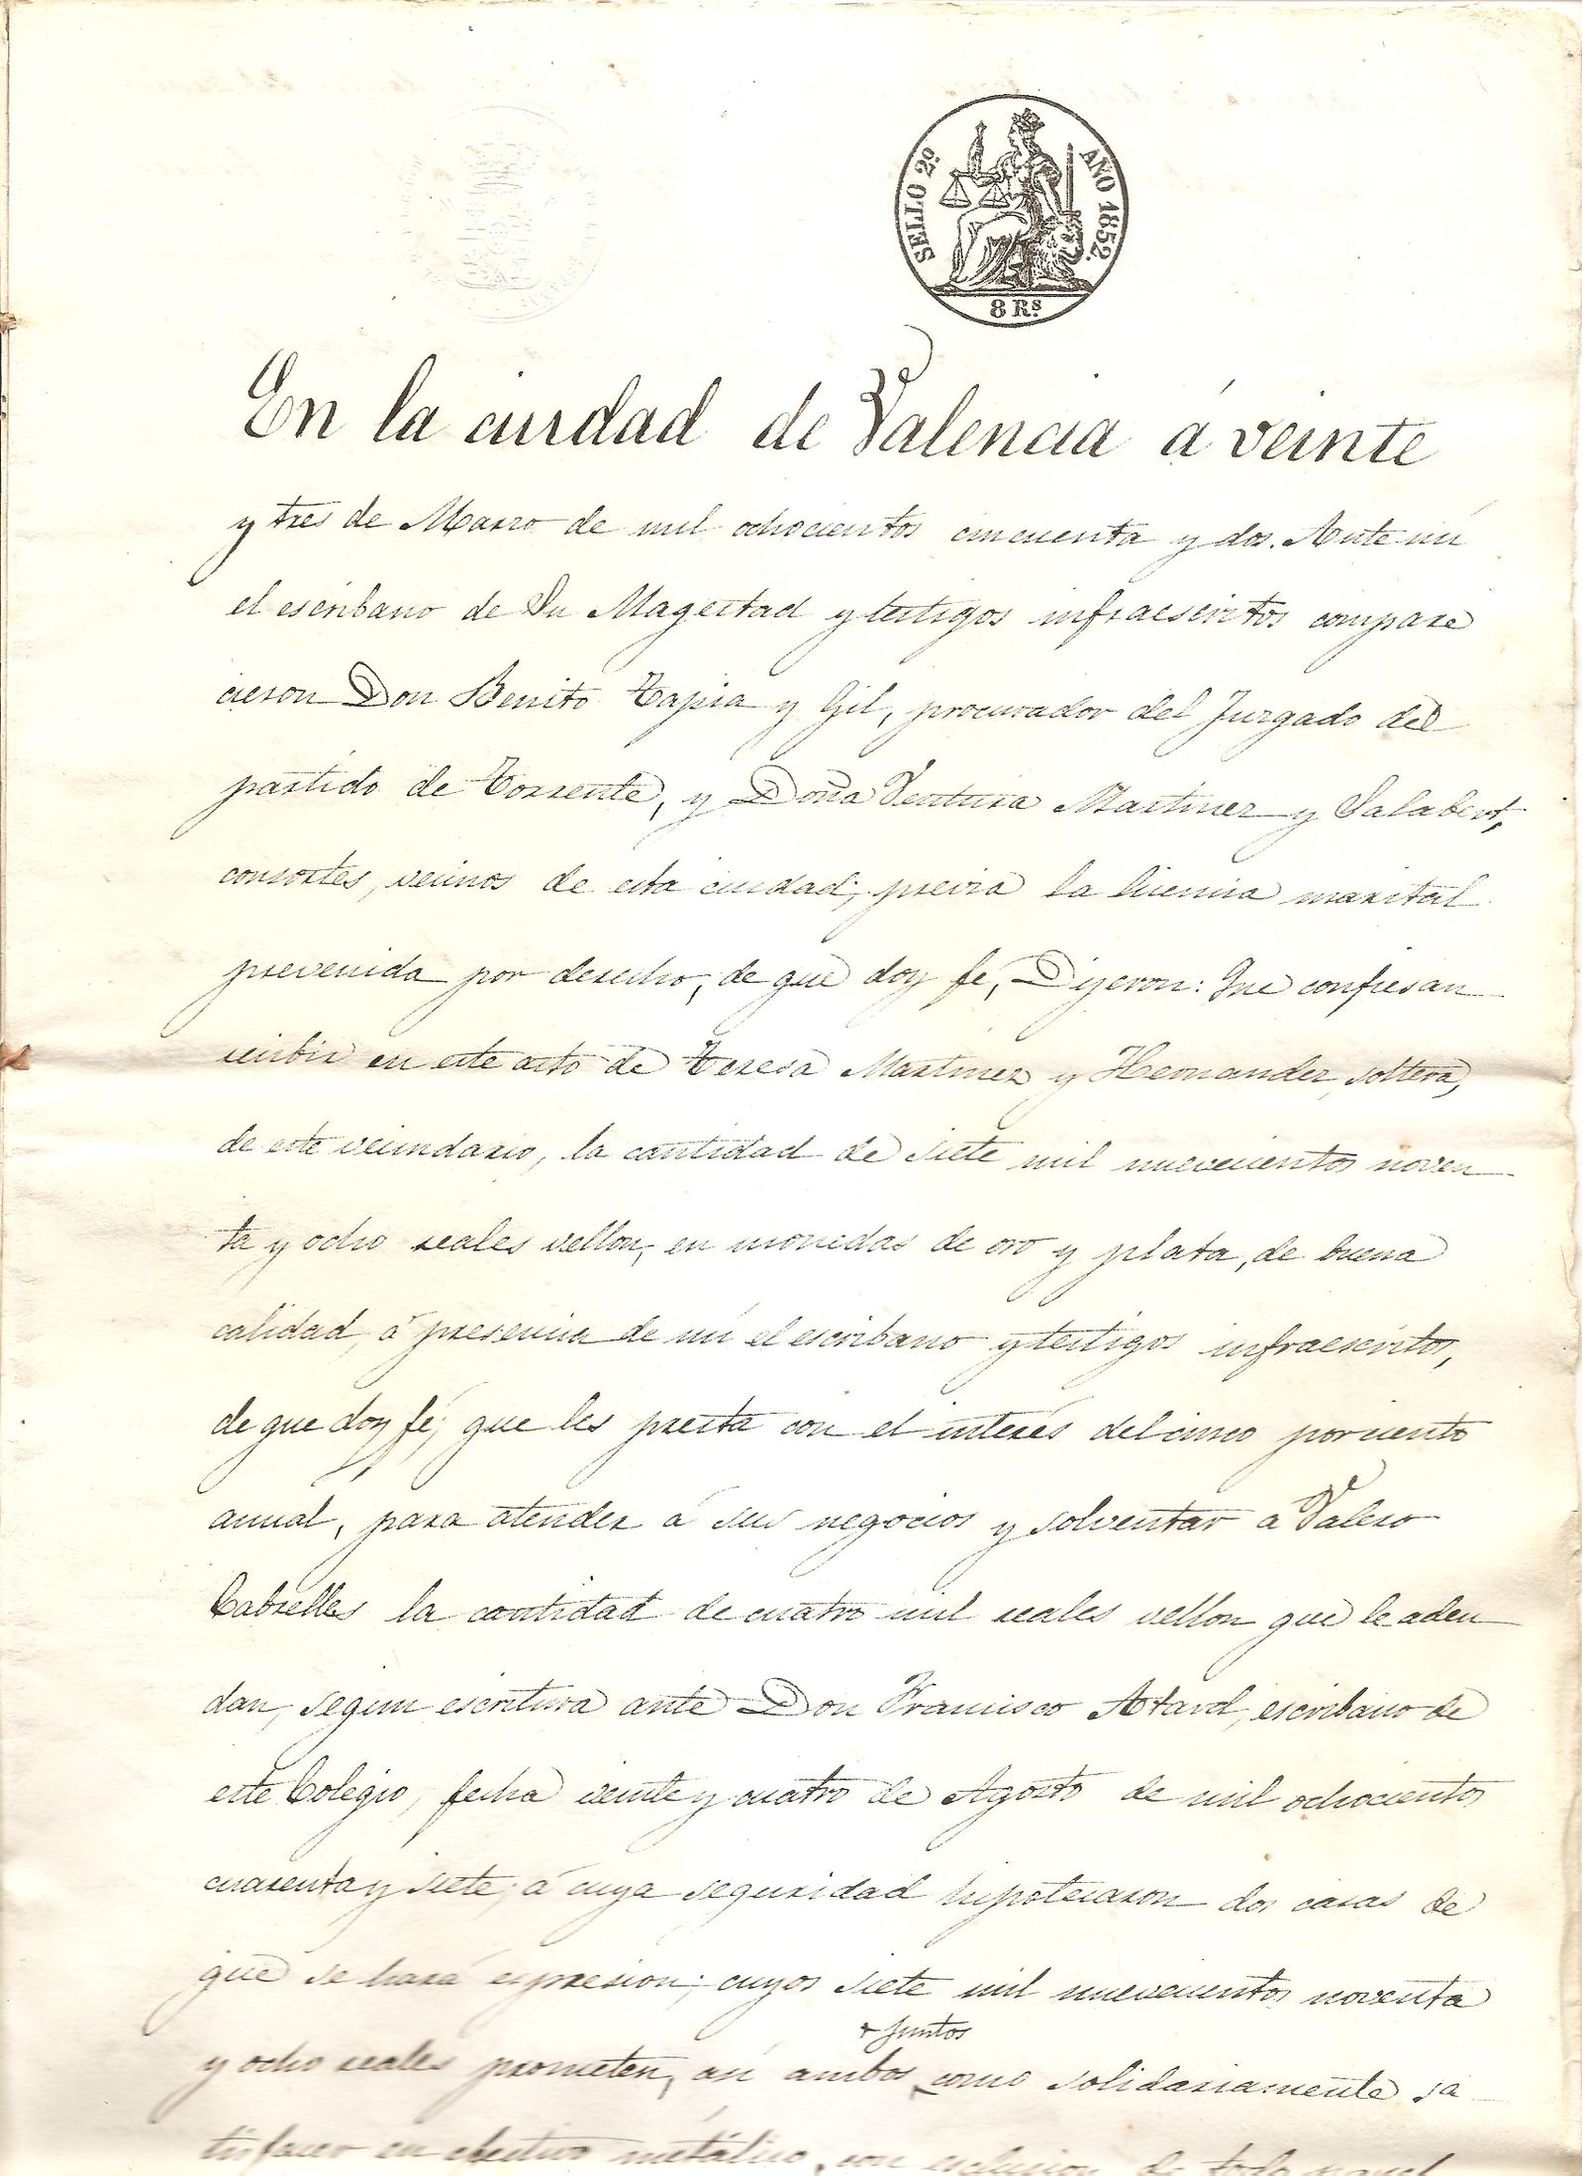 SELLO 2º AÑO 1852.
8 Rs
En la ciudad de Valencia á veinte
y tres de Marzo de mil ochocientos cincuenta y dos. Ante mí
el escribano de Su Magestad y testigos infraescritos compare
cieron Don Benito Tapia y Gil, procurador del Juzgado del
partido de Torrente, y Doña Ventura Martinez y Salabert,
consortes, vecinos de esta ciudad; previa la licencia marital
prevenida por derecho, de que doy fe, Dijeron: Que confiesan
recibir en este acto de Teresa Martinez y Hernandez, soltera,
de este vecindario, la cantidad de siete mil nuevecientos noven
ta y ocho reales vellon, en monedas de oro y plata, de buena
calidad á presencia de mí el escribano y testigos infraescritos,
de que doy fé; que les presta con el interés del cinco por ciento
anual, para atender á sus negocios y solventar a Valero
Cabrelles la cantidad de cuatro mil reales vellon que le adeu
dan, segun escritura ante Don Francisco Atard, escribano de
este Colegio, fecha veinte y cuatro de Agosto de mil ochocientos
cuarenta y siete; á cuya seguridad hipotecaron dos casas de
que se hará espresion; cuyos siete mil nuevecientos noventa
+ juntos
y ocho reales prometen, así ambos como solidariamente sa
tisfacer en efectivo metálico, con esclusion de todo papel